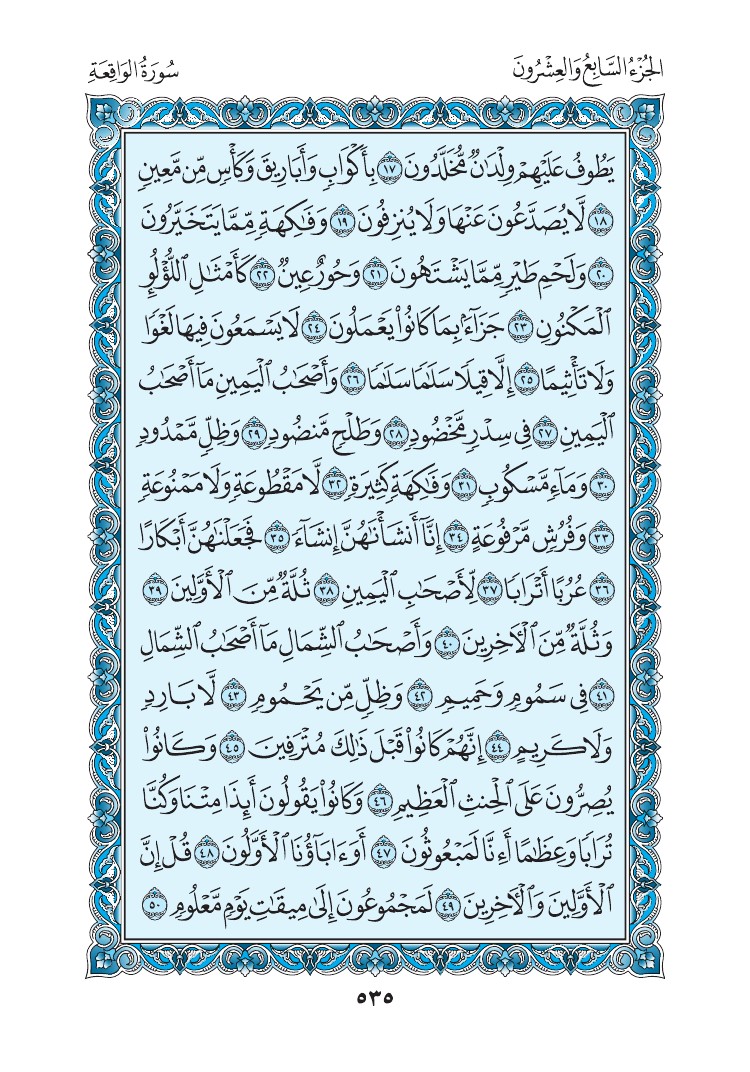 الجُزْءُ السَّابِعُ وَالعِشْرُونَ
سُورَةُ الوَاقِعَةِ
يَطُوفُ عَلَيْهِمْ وِلْدَٰنٌ مُّخَلَّدُونَ ١٧ بِأَكْوَابٍ وَأَبَارِيقَ وَكَأْسٍ مِّن مَّعِينٍ
١٨ لَّا يُصَدَّعُونَ عَنْهَا وَلَا يُنزِفُونَ ١٩ وَفَٰكِهَةٍ مِّمَّا يَتَخَيَّرُونَ
٢٠ وَلَحْمِ طَيْرٍ مِّمَّا يَشْتَهُونَ ٢١ وَحُورٌ عِينٌ ٢٢ كَأَمْثَٰلِ ٱللُّؤْلُؤِ
ٱلْمَكْنُونِ ٢٣ جَزَآءًۢ بِمَا كَانُوا۟ يَعْمَلُونَ ٢٤ لَا يَسْمَعُونَ فِيهَا لَغْوًا
وَلَا تَأْثِيمًا ٢٥ إِلَّا قِيلًا سَلَٰمًا سَلَٰمًا ٢٦ وَأَصْحَٰبُ ٱلْيَمِينِ مَآ أَصْحَٰبُ
ٱلْيَمِينِ ٢٧ فِى سِدْرٍ مَّخْضُودٍ ٢٨ وَطَلْحٍ مَّنضُودٍ ٢٩ وَظِلٍّ مَّمْدُودٍ
٣٠ وَمَآءٍ مَّسْكُوبٍ ٣١ وَفَٰكِهَةٍ كَثِيرَةٍ ٣٢ لَّا مَقْطُوعَةٍ وَلَا مَمْنُوعَةٍ
٣٣ وَفُرُشٍ مَّرْفُوعَةٍ ٣٤ إِنَّآ أَنشَأْنَٰهُنَّ إِنشَآءً ٣٥ فَجَعَلْنَٰهُنَّ أَبْكَارًا
٣٦ عُرُبًا أَتْرَابًا ٣٧ لِّأَصْحَٰبِ ٱلْيَمِينِ ٣٨ ثُلَّةٌ مِّنَ ٱلْأَوَّلِينَ ٣٩
وَثُلَّةٌ مِّنَ ٱلْءَاخِرِينَ ٤٠ وَأَصْحَٰبُ ٱلشِّمَالِ مَآ أَصْحَٰبُ ٱلشِّمَالِ
٤١ فِى سَمُومٍ وَحَمِيمٍ ٤٢ وَظِلٍّ مِّن يَحْمُومٍ ٤٣ لَّا بَارِدٍ
وَلَا كَرِيمٍ ٤٤ إِنَّهُمْ كَانُوا۟ قَبْلَ ذَٰلِكَ مُتْرَفِينَ ٤٥ وَكَانُوا۟
يُصِرُّونَ عَلَى ٱلْحِنثِ ٱلْعَظِيمِ ٤٦ وَكَانُوا۟ يَقُولُونَ أَئِذَا مِتْنَا وَكُنَّا
تُرَابًا وَعِظَٰمًا أَءِنَّا لَمَبْعُوثُونَ ٤٧ أَوَءَابَآؤُنَا ٱلْأَوَّلُونَ ٤٨ قُلْ إِنَّ
ٱلْأَوَّلِينَ وَٱلْءَاخِرِينَ ٤٩ لَمَجْمُوعُونَ إِلَىٰ مِيقَٰتِ يَوْمٍ مَّعْلُومٍ ٥٠
٥٣٥